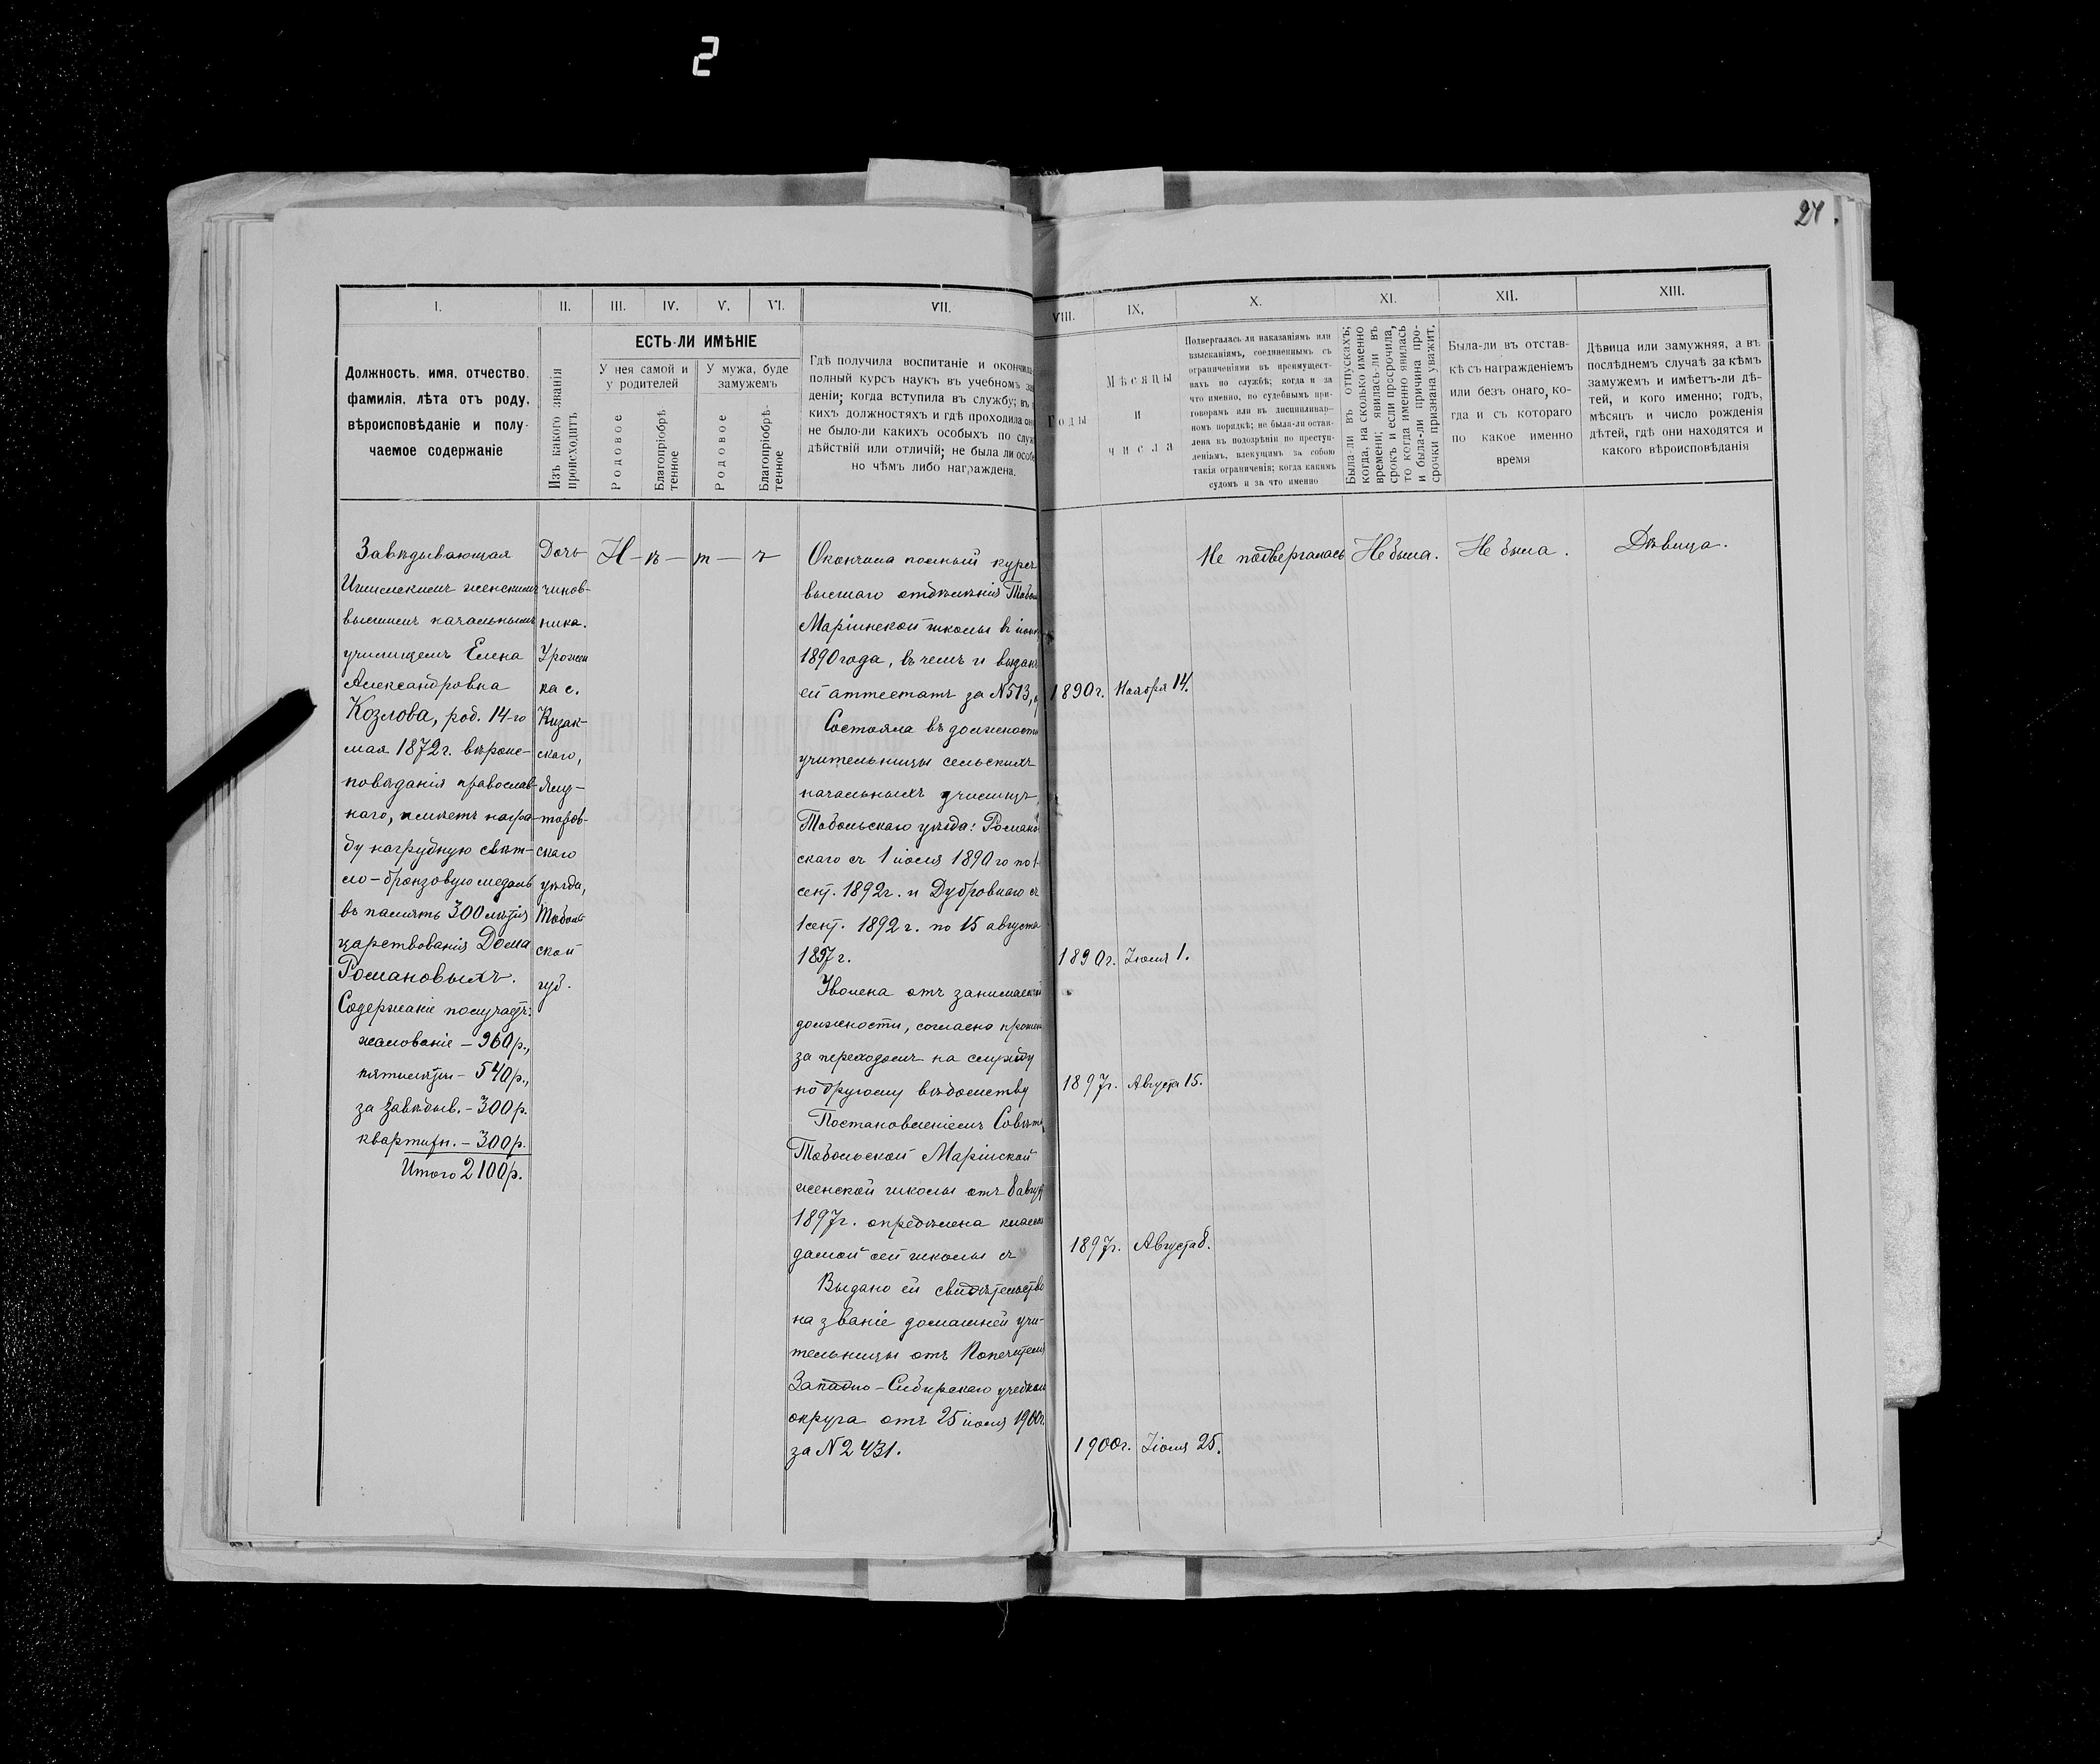 2
24.
I.
II.
III.
IV.
V.
VI.
VII.
VIII.
IX.
X.
XI.
XII.
XIII.
Должность, имя, отчество,
фамилія, лѣта отъ роду,
вѣроисповѣданіе и полу-
чаемое содержаніе
Изъ какого званія
происходитъ
ЕСТЬ-ЛИ ИМѢНІЕ
У нея самой и
у родителей
У мужа, буде
замужемъ
Родовое
Благопріобрѣ-
тенное
Родовое
Благопріобрѣ-
тенное
Гдѣ получила воспитаніе и окончила
полный курсъ наукъ въ учебномъ за
деніи; когда вступила въ службу; въ
кихъ должностяхъ и гдѣ проходила он
не было-ли какихъ особыхъ по служ
дѣйствій или отличій; не была ли особе
но чѣмъ либо награждена.
Годы
Мѣсяцы
и
числа
Подвергалась-ли наказаніямъ или
взысканіямъ, соединеннымъ съ
ограниченіями въ преимущест-
вахъ по службѣ; когда и за
что именно, по судебнымъ при-
говорамъ или въ дисциплинар-
номъ порядкѣ; не была-ли остав-
лена въ подозрѣніи по преступ-
леніямъ, влекущимъ за собою
такія ограниченія; когда какимъ
судомъ и за что именно
Была-ли въ отпускахъ;
когда, на сколько именно
времени; явилась-ли въ
срокъ и если просрочила,
то когда именно явилась
и была-ли причина про-
срочки признана уважит.
Была-ли въ отстав-
кѣ съ награжденіемъ
или безъ онаго, ко-
гда и съ котораго
по какое именно
время
Дѣвица или замужняя, а въ
послѣднемъ случаѣ за кѣмъ
замужемъ и имѣетъ-ли дѣ-
тей, и кого именно; годъ,
мѣсяцъ и число рожденія
дѣтей, гдѣ они находятся и
какого вѣроисповѣданія
Завѣдывающая
Ишимскимъ женскимъ
высшимъ начальнымъ
училищемъ Елена
Александровна
Козлова, род. 14-го
мая 1872г. вѣроис-
повѣданія православ-
наго, имѣетъ награ-
ду нагрудную свѣт-
ло-бронзовую медаль
въ память 300 лѣтія
царствованія Дома
Романовыхъ.
Содержаніе получаетъ:
жалованіе - 960р.,
пятилѣтн - 540р.,
за завѣдыв. - 300р.
квартирн. - 300р.
Итого 2100р.
Дочь
чинов-
ника.
Урожен
ка с.
Кизак-
скаго,
Ялу-
торов-
скаго
уѣзда,
Тоболь
ской
губ.
Н - ѣ - т - ъ
Окончила полный курсъ
высшаго отдѣленія Тобол
Маріинской школы въ іюн
1890 года, въ чемъ и выданъ
ей аттестатъ за N 513,
Состояла въ должности
учительницы сельскихъ
начальныхъ училищъ,
Тобольскаго уѣзда: Романов
скаго съ 1 іюля 1890 г. по 1-
сент. 1892г. и Дубровнаго съ
1 сент. 1892 г. по 15 августа
1897 г.
Уволена отъ занимаемой
должности, согласно прошен
за переходомъ на службу
по другому вѣдомству
Постановленіемъ Совѣта
Тобольской Маріинской
женской школы отъ 8 август
1897г. опредѣлена классн
дамой сей школы съ
Выдано ей свидѣтельство
на званіе домашней учи-
тельницы отъ Попечителя
Западно-Сибирскаго учебнаго
округа отъ 25 іюля 1900г.
за N 2431.
1890г. Ноября 14.
1890г. Іюля 1.
1897г. Августа 15.
1897г. Августа 8.
1900г. Іюля 25.
Не подвергалась
Не была.
Не была.
Дѣвица.